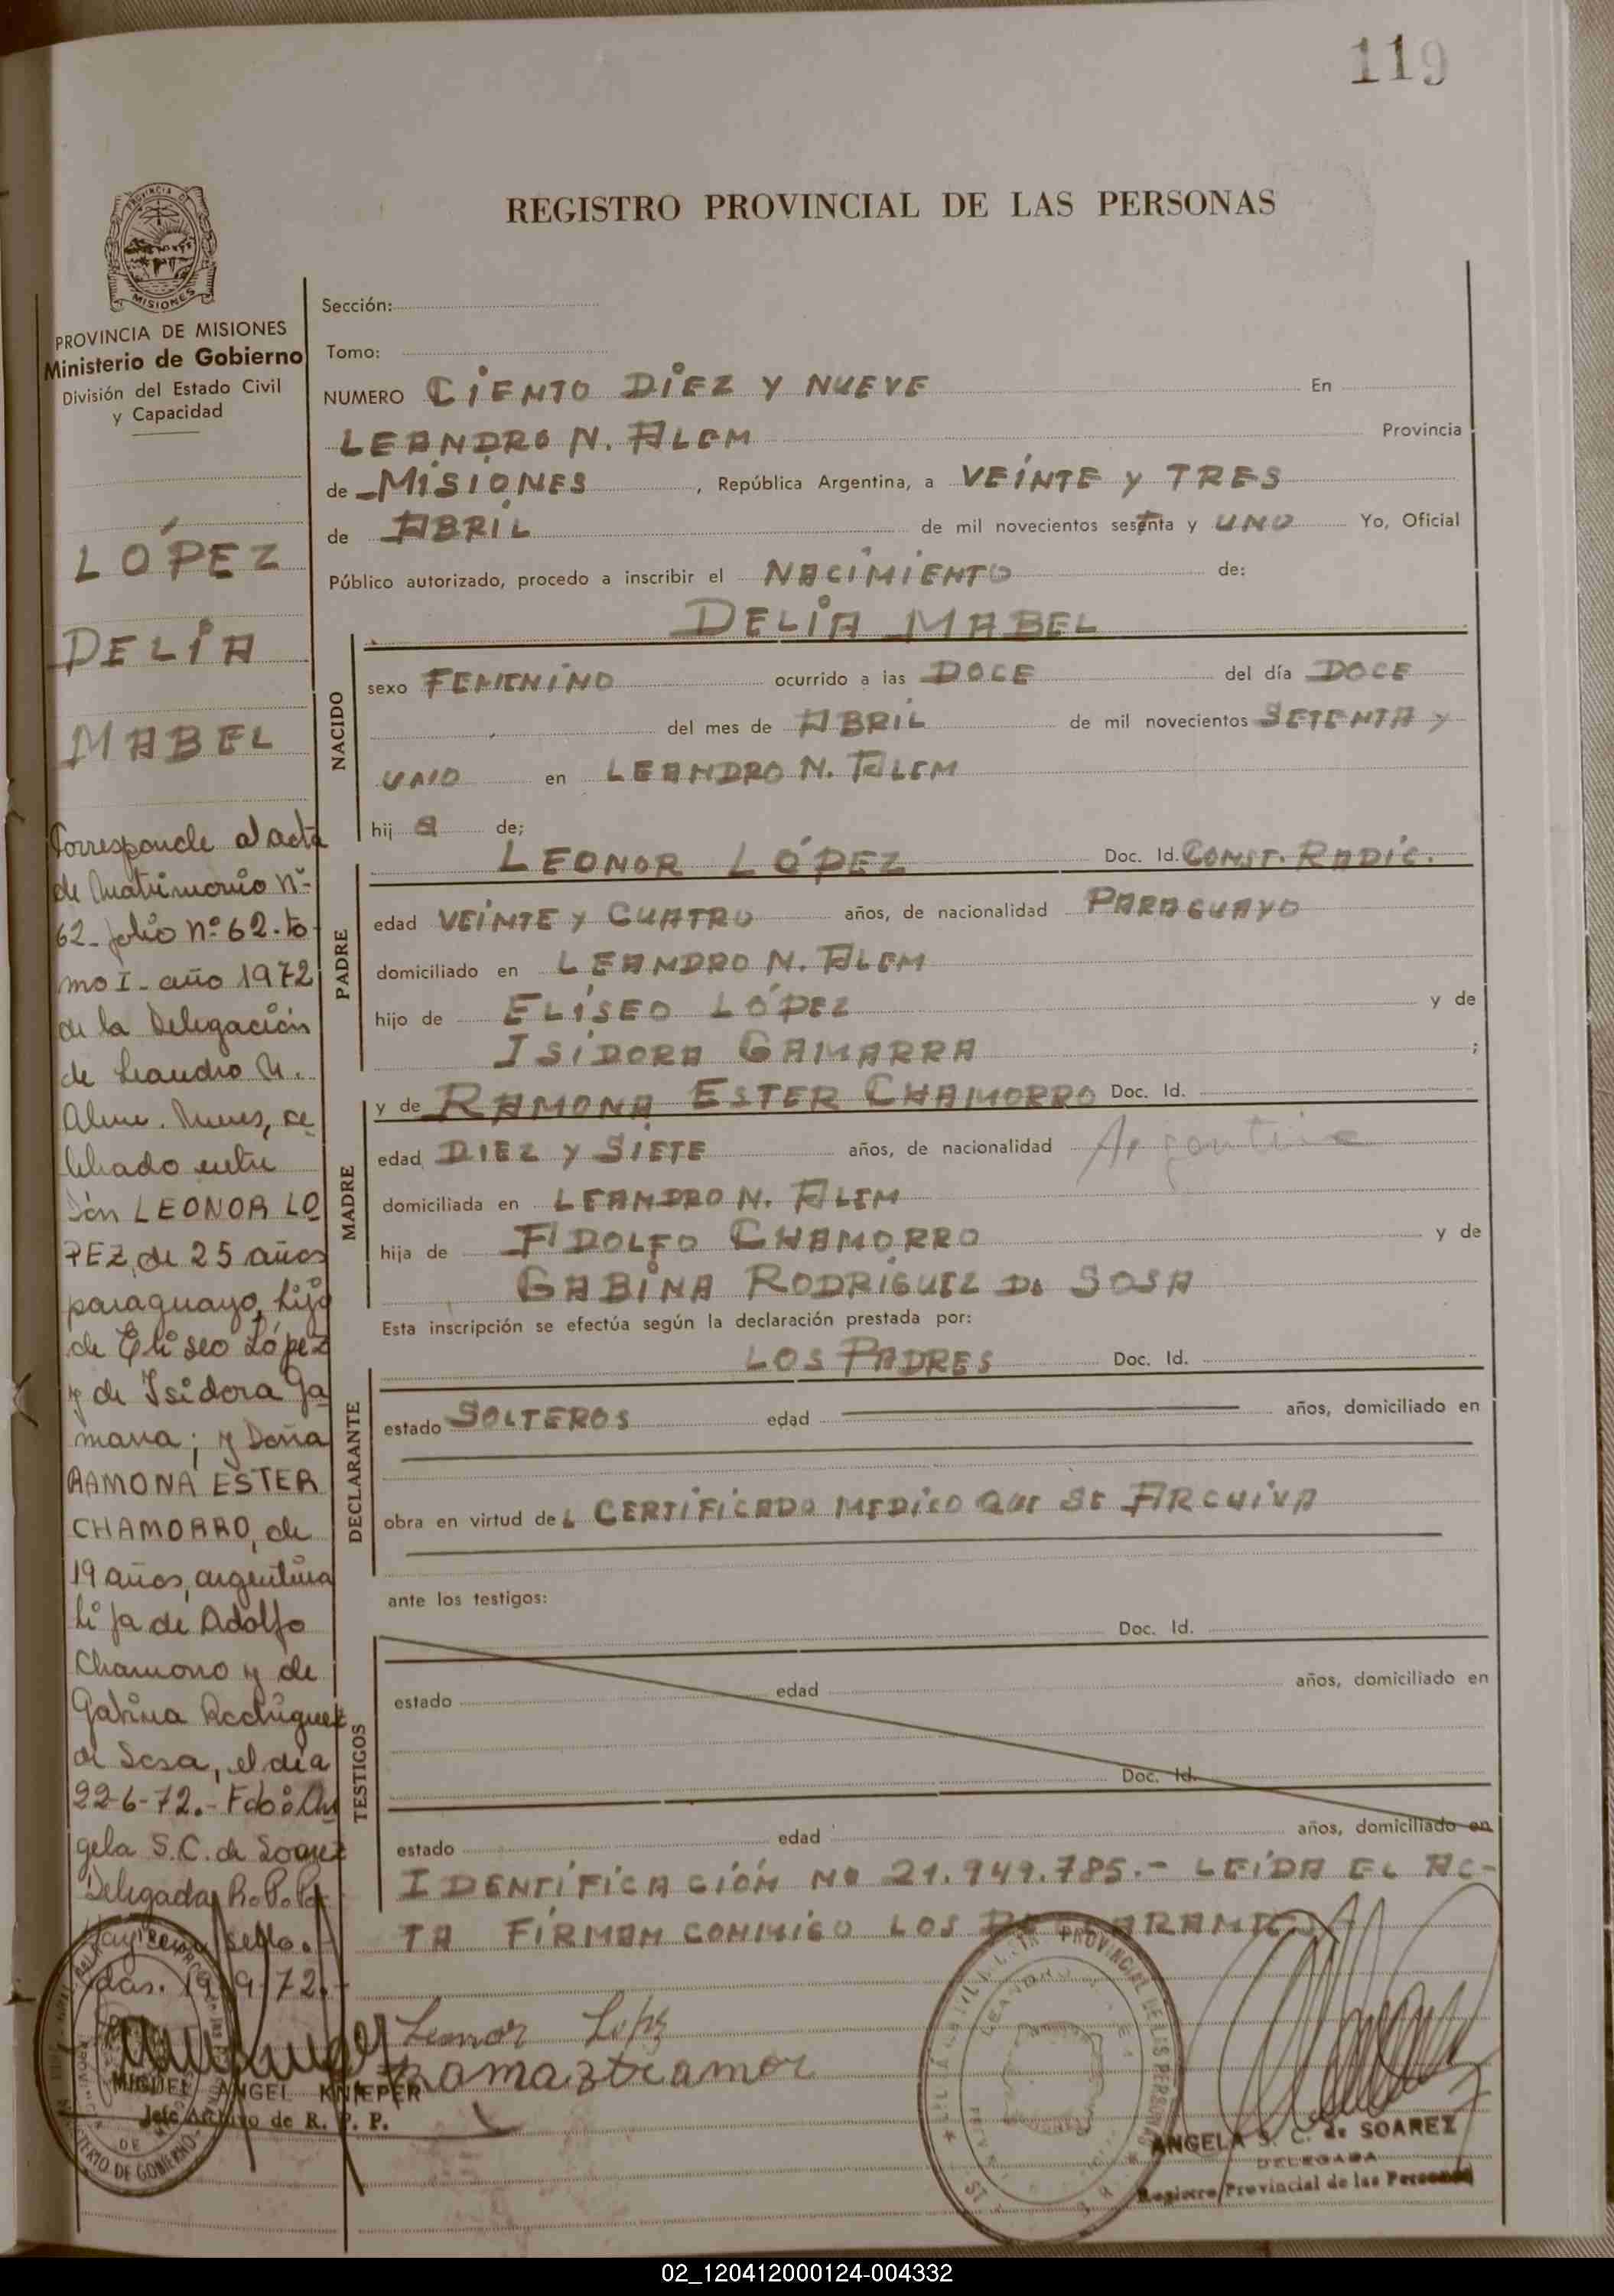 119
REGISTRO PROVINCIAL DE LAS PERSONAS
PROVINCIA
MISIONES
PROVINCIA DE MISIONES
Ministerio de Gobierno
División del Estado Civil
y Capacidad
LÓPEZ
DELIA
MABEL
Corresponde al acta
de Matrimonio Nº
62- folio nº 62. to-
mo I - año 1972
de la Delegación
de Leandro N.
Alem. Mnes, ce
lebrado entre
Don LEONOR LO
PEZ, de 25 años
paraguayo, hijo
de Eliseo López
y de Isidora Ga
marra; y Doña
RAMONA ESTER
CHAMORRO, de
19 años, argentina
hija de Adolfo
Chamorro y de
Gabina Rodriguez
de Sosa, el día
22-6-72.- Fdo: An
gela S.C. de Soarez
Delegada R.P.P.
Hay un sello.
Pdas. 19-9-72.-
MIGUEL ANGEL KNIEPER
Jefe Archivo de R. P. P.
Sección:
Tomo:
NUMERO CIENTO DIEZ Y NUEVE En
LEANDRO N. ALEM Provincia
de MISIONES , República Argentina, a VEINTE Y TRES
de ABRIL de mil novecientos sesenta y UNO Yo, Oficial
Público autorizado, procedo a inscribir el NACIMIENTO de:
DELIA MABEL
NACIDO
sexo FEMENINO ocurrido a las DOCE del día DOCE
del mes de ABRIL de mil novecientos SETENTA Y
UNO en LEANDRO N. ALEM
hij a de;
LEONOR LÓPEZ Doc. Id. CONST. RADIC.
PADRE
edad VEINTE Y CUATRO años, de nacionalidad PARAGUAYO
domiciliado en LEANDRO N. ALEM
hijo de ELISEO LÓPEZ y de
ISIDORA GAMARRA ;
y de RAMONA ESTER CHAMORRO Doc. Id.
MADRE
edad DIEZ Y SIETE años, de nacionalidad Argentina
domiciliada en LEANDRO N. ALEM
hija de ADOLFO CHAMORRO y de
GABINA RODRIGUEZ DE SOSA
Esta inscripción se efectúa según la declaración prestada por:
LOS PADRES Doc. Id.
DECLARANTE
estado SOLTEROS edad años, domiciliado en
obra en virtud deL CERTIFICADO MEDICO QUE SE ARCHIVA
ante los testigos:
Doc. Id.
TESTIGOS
estado edad años, domiciliado en
Doc. Id.
estado edad años, domiciliado en
IDENTIFICACIÓN Nº 21.949.785.- LEÍDA EL AC-
TA FIRMAN CONMIGO LOS DECLARANTES
Leonor López
PROVINCIAL DE LAS PERSONAS
ANGELA S. C. de SOAREZ
DELEGADA
Registro Provincial de las Personas
02_120412000124-004332